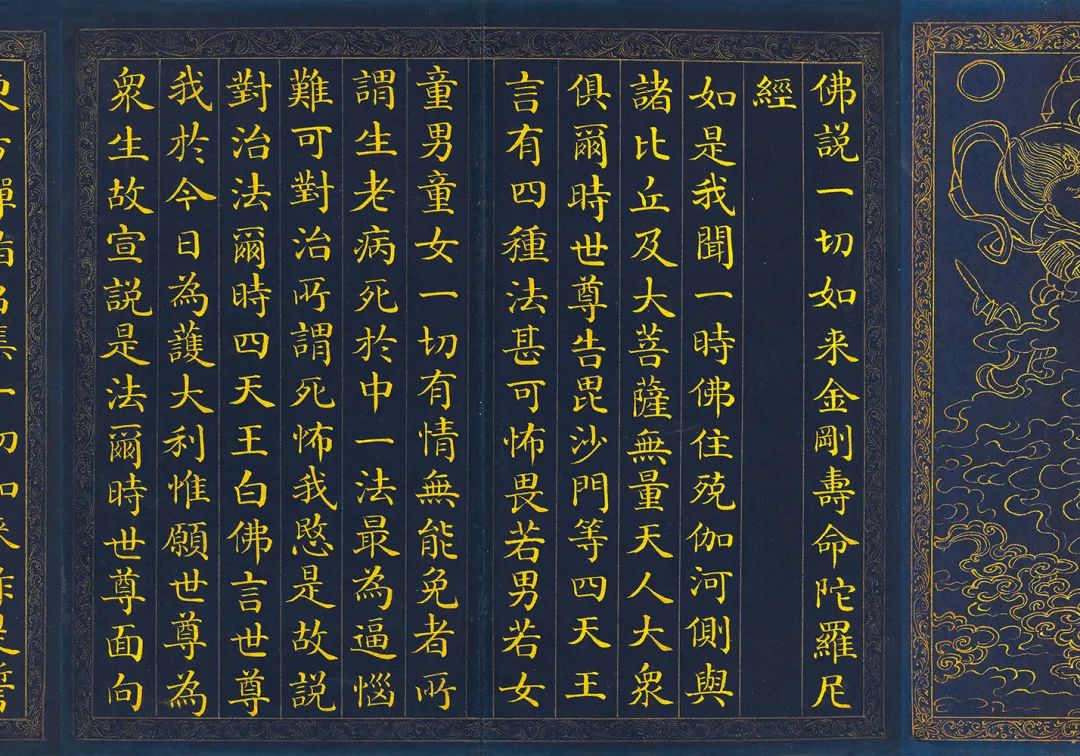 佛説一切如来金剛壽命陀羅尼
經
如是我聞一時佛住殑伽河側與
諸比丘及大菩薩無量天人大衆
俱爾時世尊告毘沙門等四天王
言有四種法甚可怖畏若男若女
童男童女一切有情無能免者所
謂生老病死於中一法最為逼惱
難可對治所謂死怖我愍是故説
對治法爾時四天王白佛言世尊
我於今日為護大利惟願世尊為
衆生故宣説是法爾時世尊面向
東方彈指召集一切如来作是誓